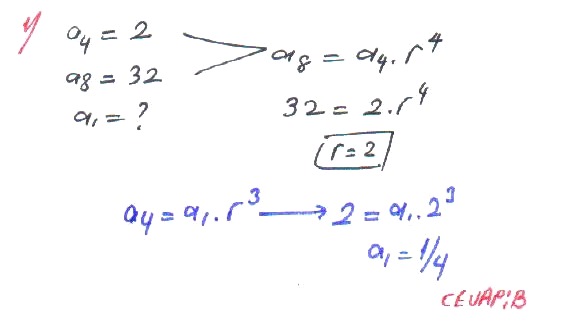 4) a₄ = 2
a₈ = 32
a₁ = ?
a₈ = a₄ . r⁴
32 = 2 . r⁴
r = 2
a₄ = a₁ . r³ → 2 = a₁ . 2³
a₁ = 1/4
CEVAP: B